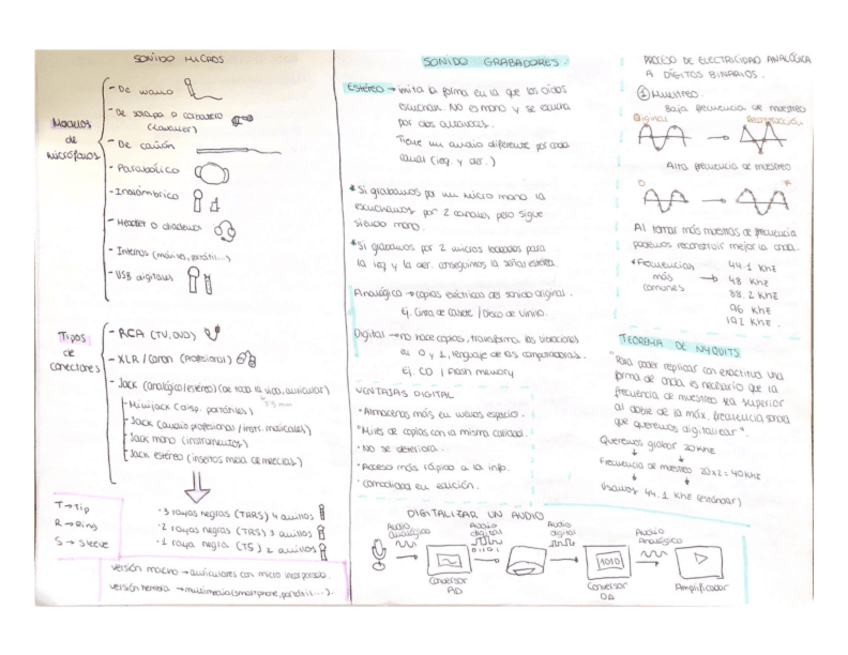 SONIDO MICROS
Modelos
de
micrófonos
- De mano
- De solapa o corbatero
(Lavalier)
- De cañón
- Parabólico
- Inalámbrico
- Headset o diadema
- Internos (móviles, portátil...)
- USB digitales
Tipos
de
conectores
- RCA (TV, DVD)
- XLR / Canon (Profesional)
- Jack (analógico/estéreo) (de toda la vida, auricular)
- Minijack (disp. portátiles) 3'5 mm
- Jack (audio profesional / instr. musicales)
- Jack mono (instrumentos)
- Jack estéreo (insertos mesa de mezclas)
T → Tip
R → Ring
S → Sleeve
· 3 rayas negras (TRRS) 4 anillos
· 2 rayas negras (TRS) 3 anillos
· 1 raya negra (TS) 2 anillos
versión macho → auriculares con micro incorporado.
versión hembra → multimedia (smartphone, portátil...).
SONIDO GRABADORES.
Estéreo → imita la forma en la que los oídos
escuchan. No es mono y se escucha
por dos altavoces.
Tiene un audio diferente por cada
canal (izq. y der.)
* Si grabamos por un micro mono la
escuchamos por 2 canales, pero sigue
siendo mono.
* Si grabamos por 2 micros
la izq y la der. conseguimos la señal estéreo.
Analógico → copias eléctricas del sonido original.
Ej. Cinta de casete / Disco de vinilo.
Digital → no hace copias, transforma las vibraciones
en 0 y 1, lenguaje de las computadoras.
Ej. CD / Flash memory
VENTAJAS DIGITAL
· Almacenas más en menos espacio.
· Miles de copias con la misma calidad.
· No se deteriora.
· Acceso más rápido a la info.
· Comodidad en edición.
PROCESO DE ELECTRICIDAD ANALÓGICA
A DÍGITOS BINARIOS.
① Muestreo.
Baja frecuencia de muestreo
Original
Reconstrucción
Alta frecuencia de muestreo
O
R
Al tomar más muestras de frecuencia
podemos reconstruir mejor la onda.
* Frecuencias
más
comunes
→
44.1 KHz
48 KHz
88.2 KHz
96 KHz
192 KHz.
TEOREMA DE NYQUITS
"Para poder replicar con exactitud una
forma de onda es necesario que la
frecuencia de muestreo sea superior
al doble de la máx. frecuencia sonora
que queremos digitalizar".
Queremos grabar 20 KHz
Frecuencia de muestreo 20x2 = 40 KHz
Usamos 44.1 KHz (estándar)
DIGITALIZAR UN AUDIO
Audio
analógico
Conversor
AD
Audio
digital
01101
Audio
digital
1010
Conversor
DA
Audio
Analógico
Amplificador